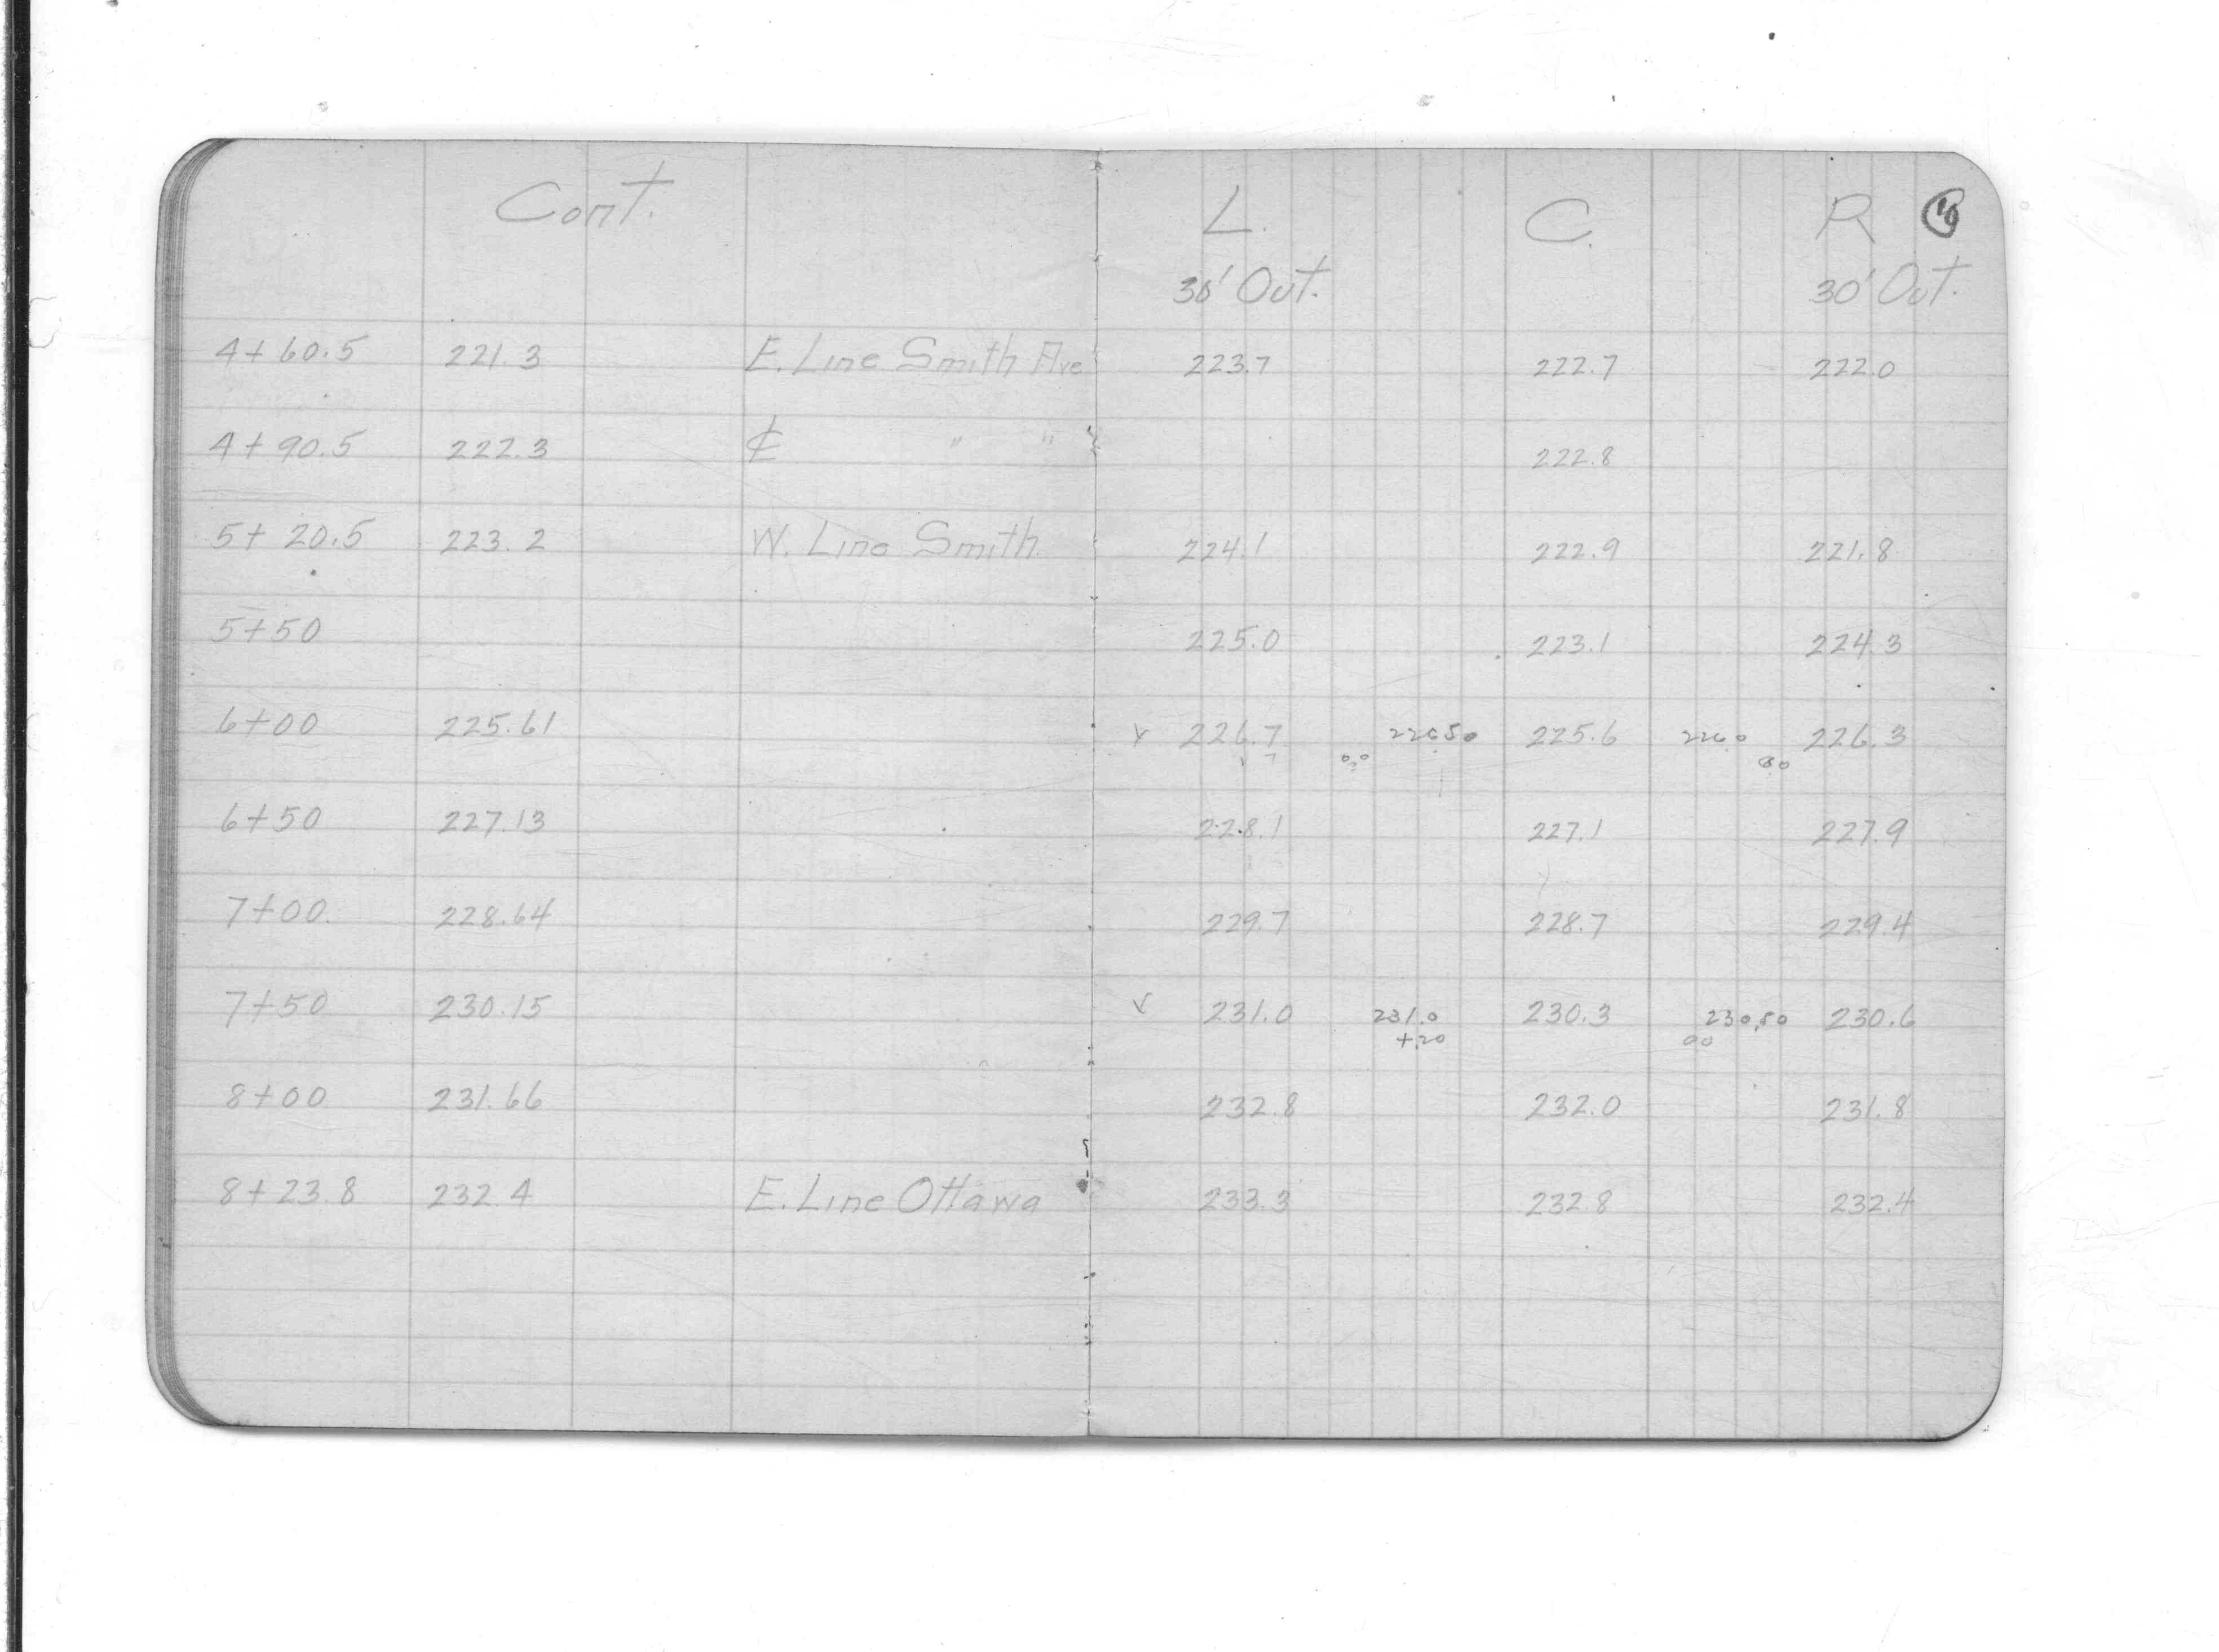 Cont. L. C. R 10
30' Out. 30' Out.
4+60.5 221.3 E. Line Smith Ave 223.7 222.7 222.0
4+90.5 222.3 ℄ " " 222.8
5+20.5 223.2 W. Line Smith 224.1 222.9 221.8
5+50 225.0 223.1 224.3
6+00 225.61 226.7 226.50 225.6 226.0 226.3
6+50 227.13 228.1 227.1 227.9
7+00. 228.64 229.7 228.7 229.4
7+50 230.15 231.0 231.0 230.3 230.50 230.6
+.20 00
8+00 231.66 232.8 232.0 231.8
8+23.8 232.4 E. Line Ottawa 233.3 232.8 232.4